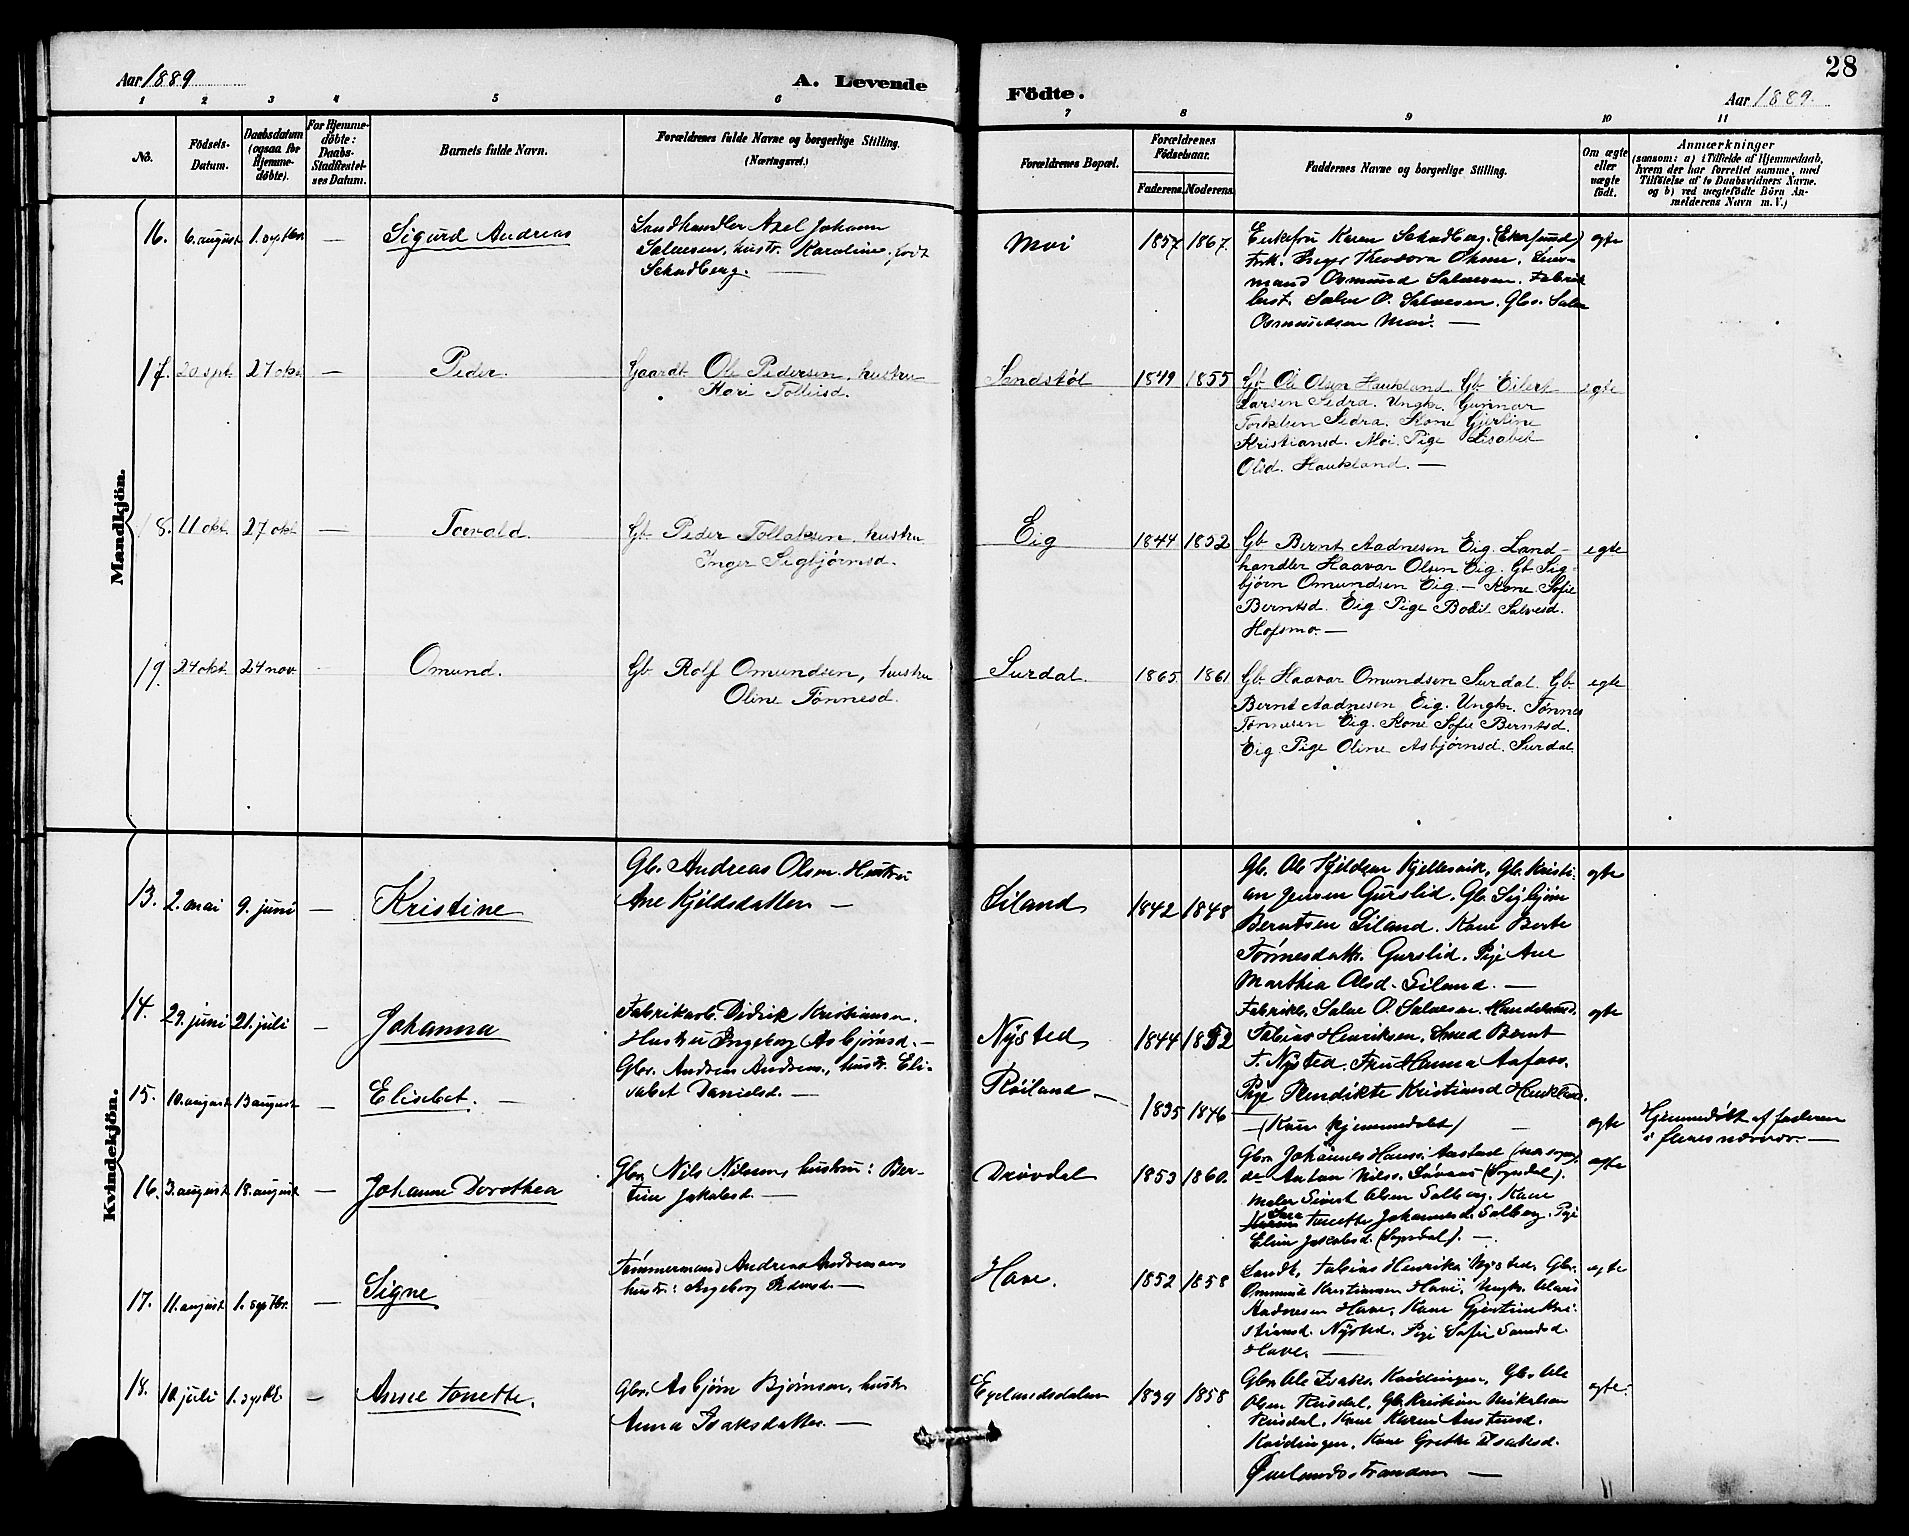 Aar 1889
A. Levende
Födte.
28
Aar 1889.
1 2 3 4 5 6 7 8 9 10 11
No.
Fødsels-Datum.
Daabsdatum (ogsaa for Hjemme-döbte).
For Hjemme-döbte: Daabs-Stadfæstel-ses Datum.
Barnets fulde Navn.
Forældrenes fulde Navne og borgerlige Stilling.
(Næringsvei.)
Forældrenes Bopæl.
Forældrenes Födselsaar.
Faderens. Moderens.
Faddernes Navne og borgerlige Stilling.
Om ægte eller uægte födt.
Anmærkninger
(saasom: a) i Tilfælde af Hjemmedaab, hvem der har forrettet samme, med Tilföielse af to Daabsvidners Navne, og b) ved uægtefödte Börn An-melderens Navn m. V.)
Mandkjön.
16. 6. august 1. septbr — Sigurd Andreas
Landhandler Axel Johann
Salvesen, hustr. Karoline, født
Schadberg. —
Moi 1857 1867.
Enkefru Karen Schadberg. (Ekersund)
Frk. Inger Theodora
mand Osmund Salvesen. Fabrik
best. Salve O. Salvesen. Gbr. Salve
Osmundsen Moi. —
egte
17. 20 spt. 27 okt — Peder.
Gaardb. Ole Pedersen, hustru
Kari Tolleisd.
Sandstøl 1849 1855
Gb. Ole Olsen Haukland Gb. Eilert
Larsen Sedra. Ungkr. Gunnar
Torkelsen Sedra. Kone Gjertine
Kristiansd. Moi. Pige Lisabet
Olsd. Haukland. —
egte
18. 11 okt. 27 okt — Torvald.
Gb. Peder Tollaksen, hustru
Inger Sigbjørnsd.
Eig 1844 1852
Gb. Bernt Aadnesen Eig. Land-
handler Haavar Olsen Eig. Gb. Sig-
bjørn Omundsen Eig — Kone Sofie
Berntsd. Eig Pige Bodil Salvesd.
Hofsmo. —
egte
19. 24 okt. 24 nov. — Omund.
Gb. Rolf Omundsen, hustru
Oline Tønnesd.
Surdal. 1865 1861
Gb. Haavar Omundsen Surdal. Gb.
Bernt Aadnesen Eig. Ungkr. Tønnes
Tønnesen Eig. Kone Sofie Berntsd.
Eig. Pige Oline Asbjørnsd. Surdal
egte
Kvindekjön.
13. 2. mai 9. juni — Kristine
Gbr. Andreas Olsen. Hustru
Ane Kjeldsdatter —
Eiland 1842 1848
Gbr. Ole Kjeldsen Kjellesvik, Gbr. Kristi-
an Jensen Gurslid. Gbr. Sigbjørn
Berntsen Eiland. Kone Berte
Tønnesdattr. Gurslid. Pige Ane
Marthea Olsd. Eiland. —
egte
14. 29. juni 21. juli — Johanna
Fabrikarb. Didrik Kristiansen.
Hustru Ingeborg Asbjørnsd. —
Nysted 1844 1852
Fabrikb. Salve O. Salvesen. Handelsmd.
Tobias Henriksen, Smed Bernt
T. Nysted. Fru Hanna Aafoss.
Pige Bendikte Kristiansd Haukland.
egte
15. 10. august 13 august — Elisebet. —
Gbr. Andreas Andreas., hustr. Eli-
sabet Danielsd. —
Røiland — 1835 1846
— (Kun hjemmedøbt) —
egte
Hjemmedøbt af faderen
i nærvær. —
16. 3. august 18. august — Johanne Dorothea
Gbr. Nils Nilsen, hustru: Ber-
tine Jakobsd. —
Drøvdal 1853 1860.
Gbr. Johannes Hans: Aastad
Anton Nils. (Sogndal).
Maler Sivert Olsen Salberg. Kone
Sara Tonette Johannesd. Salberg. Pige
Eline Jakobsd. (Sogndal). —
egte
17. 11. august 1. septbr. — Signe
Tømmermand Andreas Andreassen
hustr: Ingeborg Pedersd. —
Have. 1852 1858
Landh. Tobias Henriks. Nysted, Gbr.
Ommund Kristiansen Have, Ungkr.
Aadnesen Have, Kone Gjertine Kri-
stiansd. Nysted. Pige Sofie
Have. —
egte
18. 10. juli 1. septbr — Anne Tonette.
Gbr. Asbjørn Bjørnsen, hustr.
Anna Isaksdatter. —
Egelandsdalen 1839 1858
Gbr. Ole Isaks. Kvidingen, Gbr. Ole
Olsen Gbr. Kristian Mikalsen
Kone Karen
Kvidingen. Kone Grethe Isaksd.
—
egte.